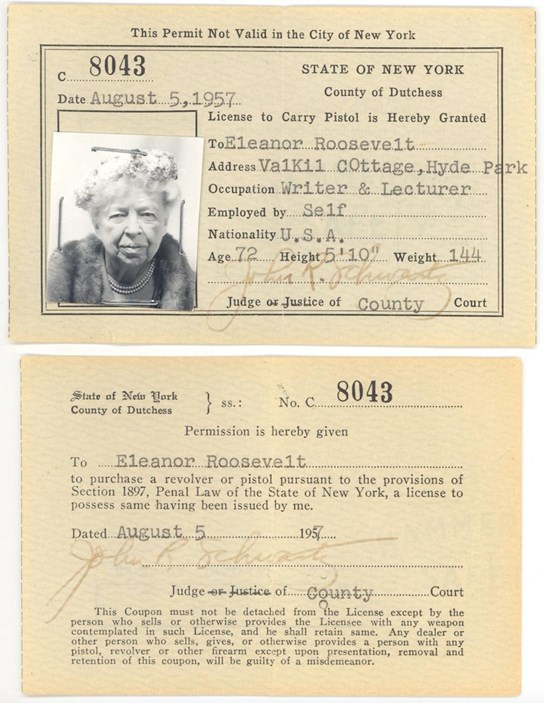 This Permit Not Valid in the City of New York
C 8043
STATE OF NEW YORK
Date August 5,1957
County of Dutchess
License to Carry Pistol is Hereby Granted
To Eleanor Roosevelt
Address ValKil COttage,Hyde Park
Occupation Writer & Lecturer
Employed by Self
Nationality U.S.A.
Age 72 Height 5'10" Weight 144
John R. Schwartz
Judge or Justice of County Court
State of New York
County of Dutchess
} ss.: No. C 8043
Permission is hereby given
To Eleanor Roosevelt
to purchase a revolver or pistol pursuant to the provisions of
Section 1897, Penal Law of the State of New York, a license to
possess same having been issued by me.
Dated August 5 1957
John R. Schwartz
Judge or Justice of County Court
This Coupon must not be detached from the License except by the
person who sells or otherwise provides the Licensee with any weapon
contemplated in such License, and he shall retain same. Any dealer or
other person who sells, gives, or otherwise provides a person with any
pistol, revolver or other firearm except upon presentation, removal and
retention of this coupon, will be guilty of a misdemeanor.